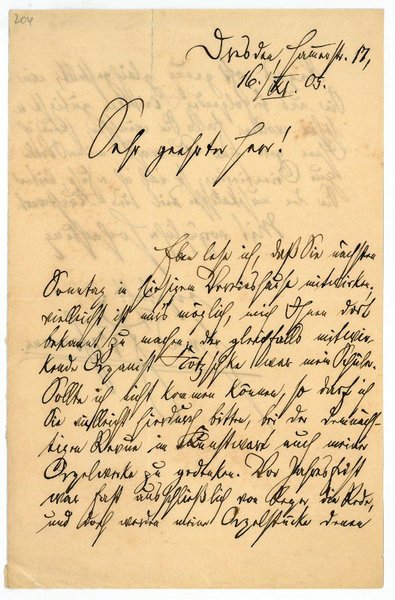 204
Dresden, Hammerstr. 17,
16./XI. 05.
Sehr geehrter Herr!
Eben lese ich, daß Sie nächsten
Sonntag im hiesigen Vereinshause mitwirken.
Vielleicht ist mir's möglich, mich Ihnen dort
bekannt zu machen – der gleichfalls mitwir-
kende Organist war mein Schüler.
Sollte ich nicht kommen können, so darf ich
Sie vielleicht hierdurch bitten, bei der demnäch-
stigen Revue im Kunstwart auch meiner
Orgelwerke zu gedenken. Vor Jahresfrist
war fast ausschließlich von Reger die Rede,
und doch werden meine Orgelstücke denen